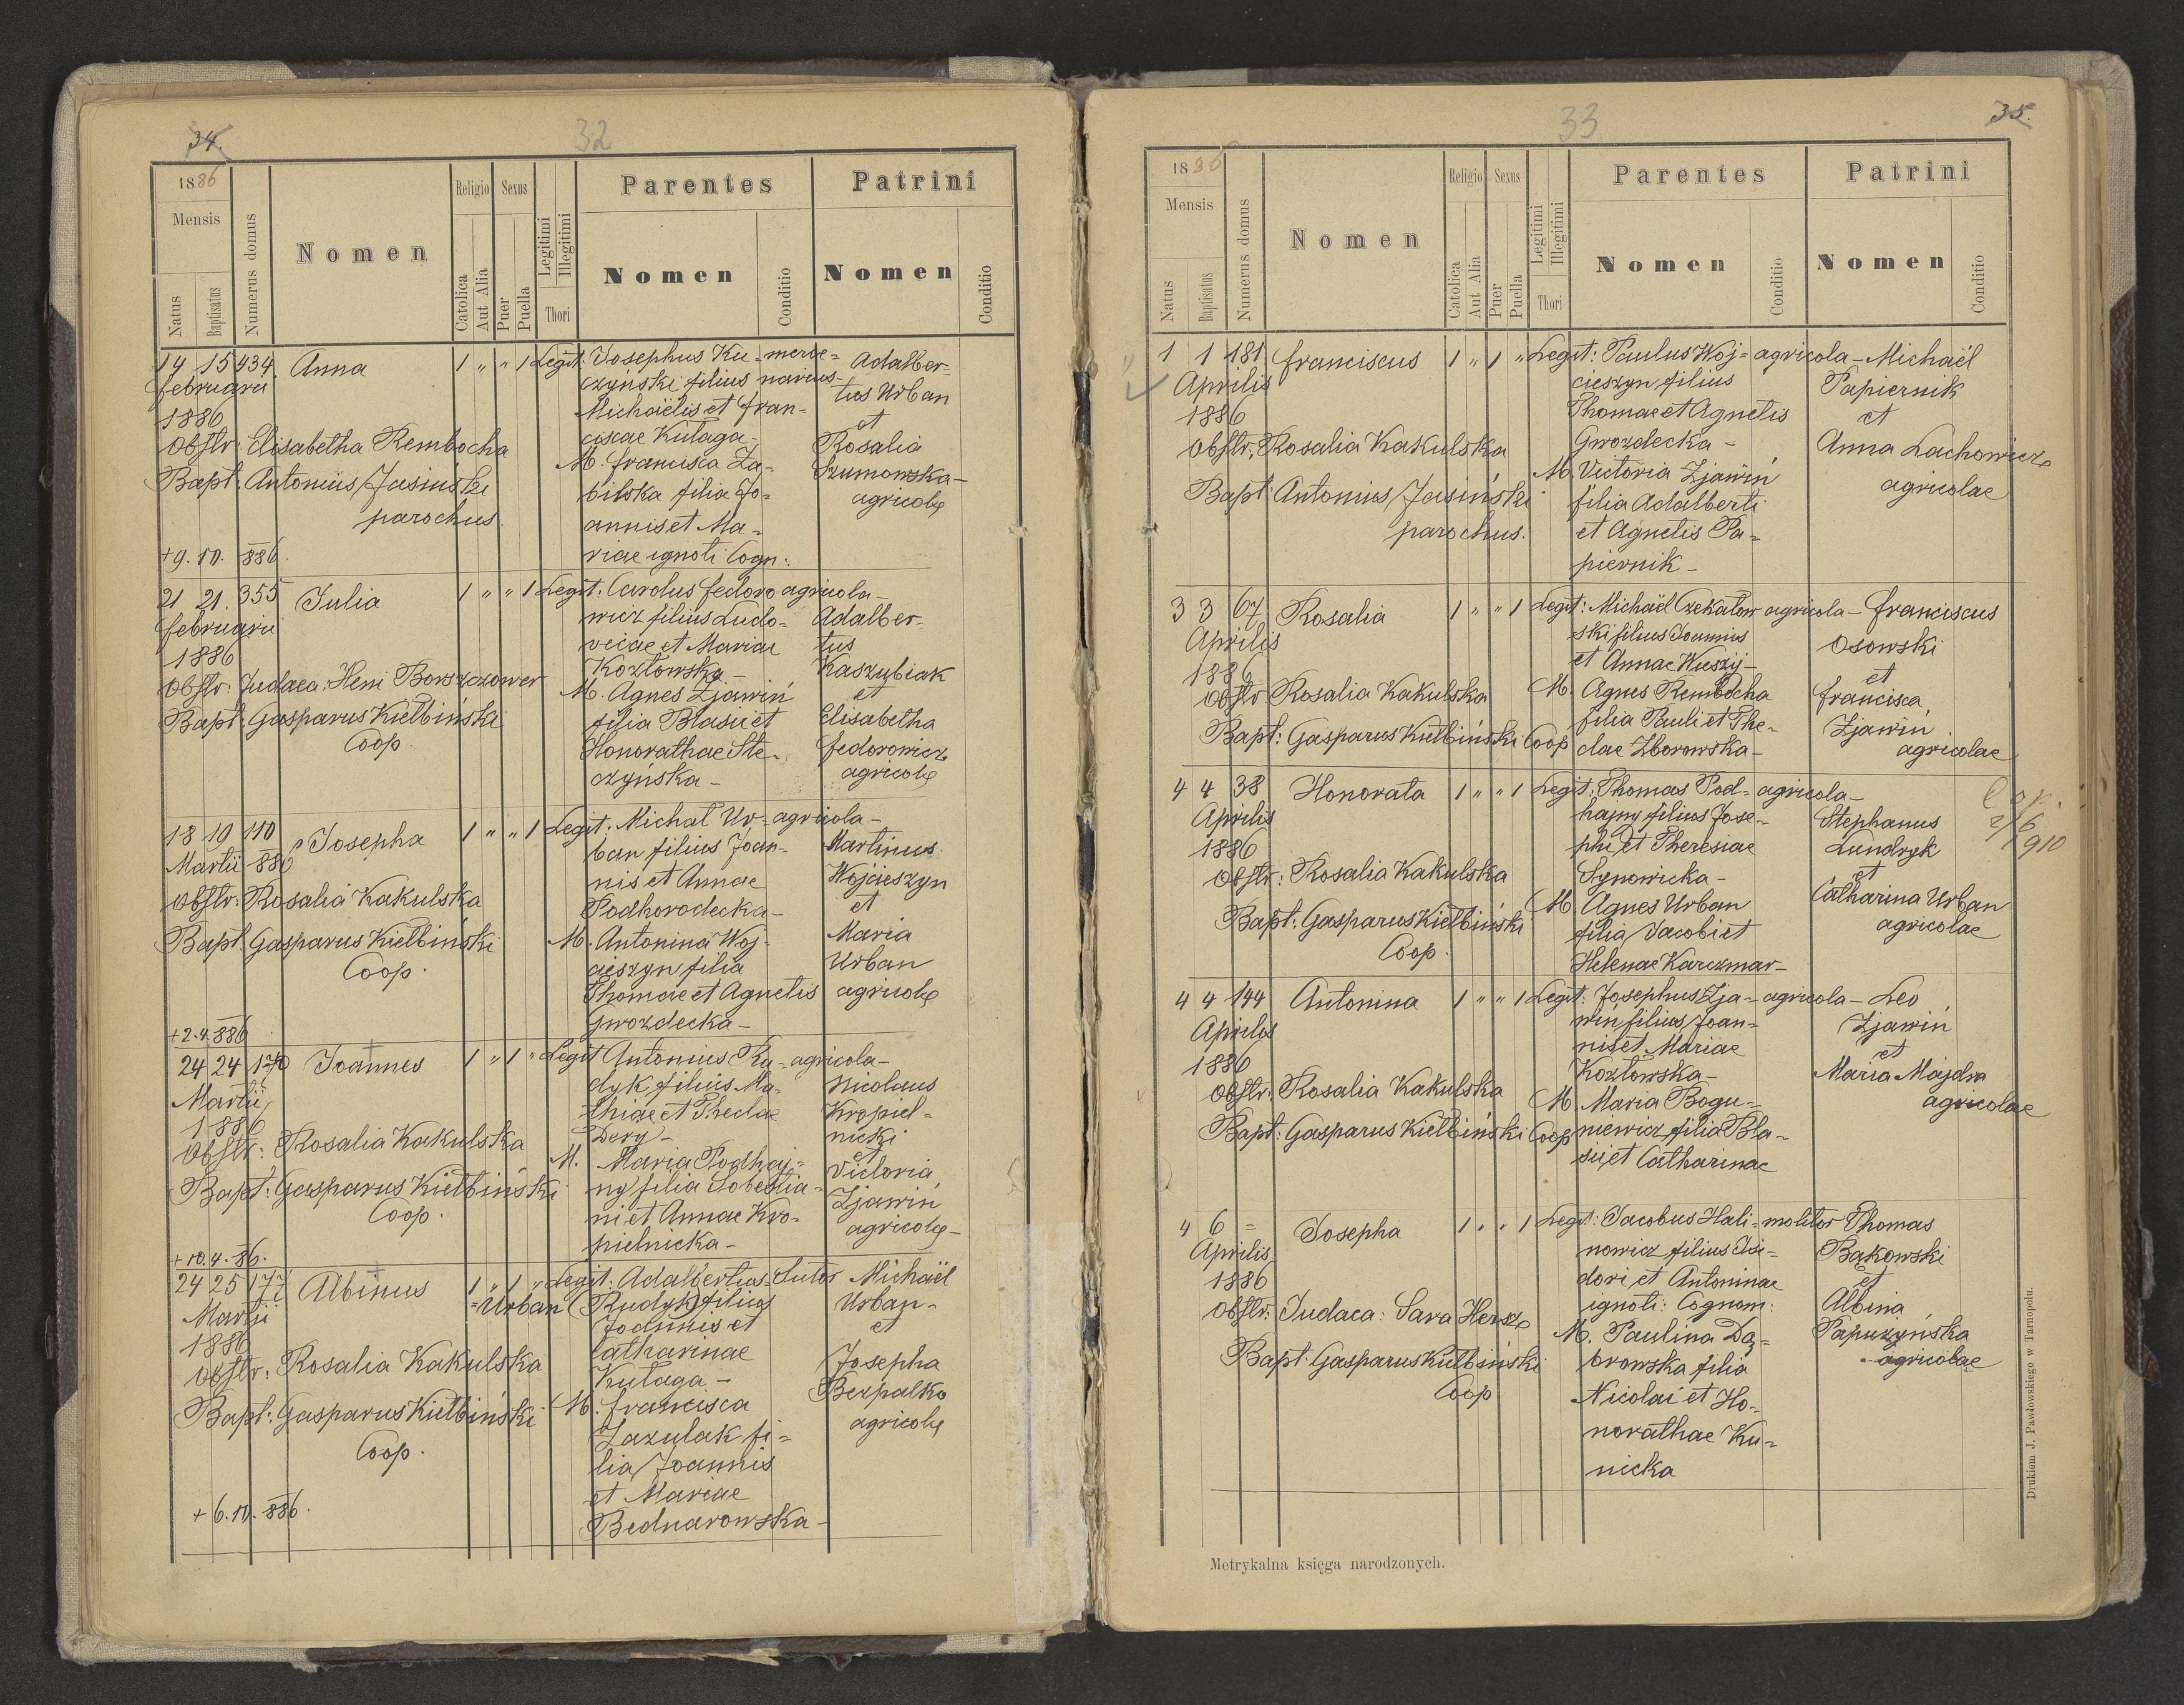 34.
32
1886
Mensis
Natus
Baptisatus
Numerus domus
Nomen
Religio
Catolica
Aut Alia
Sexus
Puer
Puella
Legitimi
Illegitimi
Thori
Parentes
Nomen
Conditio
Patrini
Nomen
Conditio
14 15 434. Anna 1 " " 1 Legit. Josephus Ku- merce-
czyński filius narius-
Michaëlis et Fran-
ciscae Kulaga-
M. Francisca Za-
bilska filia Jo-
annis et Ma-
riae ignoti Cogn:
Adalber-
tus Urban
et
Rosalia
Szumowska-
agricolę
Februarii
1886
Obstr: Elisabetha Rembocha
Bapt: Antonius Jasiński
parochus.
+9. IV. 886.
21 21. 355 Julia 1 " " 1 Legit: Carolus Fedoro agricola-
wicz filius Ludo-
vicae et Mariae
Kozłowska-
M. Agnes Zjawiń
filia Blasii et
Honorathae Ste-
czyńska-
Adalber-
tus
Kaszubiak
et
Elisabetha
Fedorowicz
agricolę
Februarii
1886
Obstr: Judaea: Heni Borszczower
Bapt: Gasparus Kiełbiński
Coop.
18 19 110 Josepha 1 " " 1 Legit: Michał Ur- agricola-
ban filius Joan-
nis et Annae
Podhorodecka-
M. Antonina Woj-
cieszyn filia
Thomae et Agnetis
Gwozdecka-
Martinus
Wojcieszyn
et
Maria
Urban
agricolę
Martii 886
Obstr: Rosalia Kakulska
Bapt. Gasparus Kiełbiński
Coop.
+2.4.886
24 24 170 Joannes 1 " 1 " Legit Antonius Ru- agricola-
dyk filius Ma-
thiae et Theclae
Dery-
M. Maria Podhaj-
ny filia Sobestia-
ni et Annae Kro-
pielnicka-
Nicolaus
Kropiel-
nicki
et
Victoria
Zjawiń
agricolę-
Martii,
1886
Obstr: Rosalia Kakulska
Bapt: Gasparus Kiełbiński
Coop.
+10.4.86.
24 25 177 Albinus 1 " 1 " Legit: Adalbertus- Sutor
=Urban (Rudyk) filius
Joannis et
Catharinae
Kulaga-
M: Francisca
Zazulak fi-
lia Joannis
et Mariae
Bednarowska-
Michaël
Urban-
et
Josepha
Bezpalko
agricolę
Martii
1886
Obstr: Rosalia Kakulska
Bapt: Gasparus Kiełbiński
Coop.
+6.IV.886.
35.
33
1886
Mensis
Natus
Baptisatus
Numerus domus
Nomen
Religio
Catolica
Aut Alia
Sexus
Puer
Puella
Legitimi
Illegitimi
Thori
Parentes
Nomen
Conditio
Patrini
Nomen
Conditio
1 1 181 Franciscus 1 " 1 " Legit: Paulus Woj- agricola-
cieszyn filius
Thomae et Agnetis
Gwozdecka-
M. Victoria Zjawiń
filia Adalberti
et Agnetis Pa-
piernik-
Michaël
Papiernik
et
Anna Lachowicz
agricolae
Aprilis
1886
Obstr: Rosalia Kakulska
Bapt: Antonius Jasiński
parochus.
3 3 67 Rosalia 1 " " 1 Legit: Michaël Czekałow agricola-
ski filius Joannis
et Annae
M. Agnes Rembocha
filia Pauli et The-
clae Zborowska-
Franciscus
Osowski
et
Francisca
Zjawiń
agricolae
Aprilis
1886
Obstr Rosalia Kakulska
Bapt: Gasparus Kiełbiński Coop
4 4 38 Honorata 1 " " 1 Legit: Thomas Pod- agricola-
hajny filius Jose-
phi et Theresiae
Synowicka-
M. Agnes Urban
filia Jacobi et
Helenae Karczmar-
Stephanus
Lundryk
et
Catharina Urban
agricolae
2/6
1910
Aprilis
1886
Obstr: Rosalia Kakulska
Bapt. Gasparus Kiełbiński
Coop.
4 4 144 Antonina 1 " " 1 Legit: Josephus Zja- agricola-
wiń filius Joan-
nis et Mariae
Kozłowska-
M. Maria Bogu-
niewicz filia Bla-
sii et Catharinae
Leo
Zjawiń
et
Maria Majdra
agricolae
Aprilis
1886
Obstr: Rosalia Kakulska
Bapt: Gasparus Kiełbiński Coop
4 6 = Josepha 1 " " 1 Legit: Jacobus Hali- molitor
nowicz filius Isi-
dori et Antoninae
ignoti: Cognom:
M. Paulina Dą-
browska filia
Nicolai et Ho-
norathae Ku-
nicka
Thomas
Bakowski
et
Albina
Papuzyńska
agricolae
Aprilis
1886
Obstr: Judaea: Sara Hersz
Bapt: Gasparus Kiełbiński
Coop
Metrykalna księga narodzonych.
Drukiem J. Pawłowskiego w Tarnopolu.